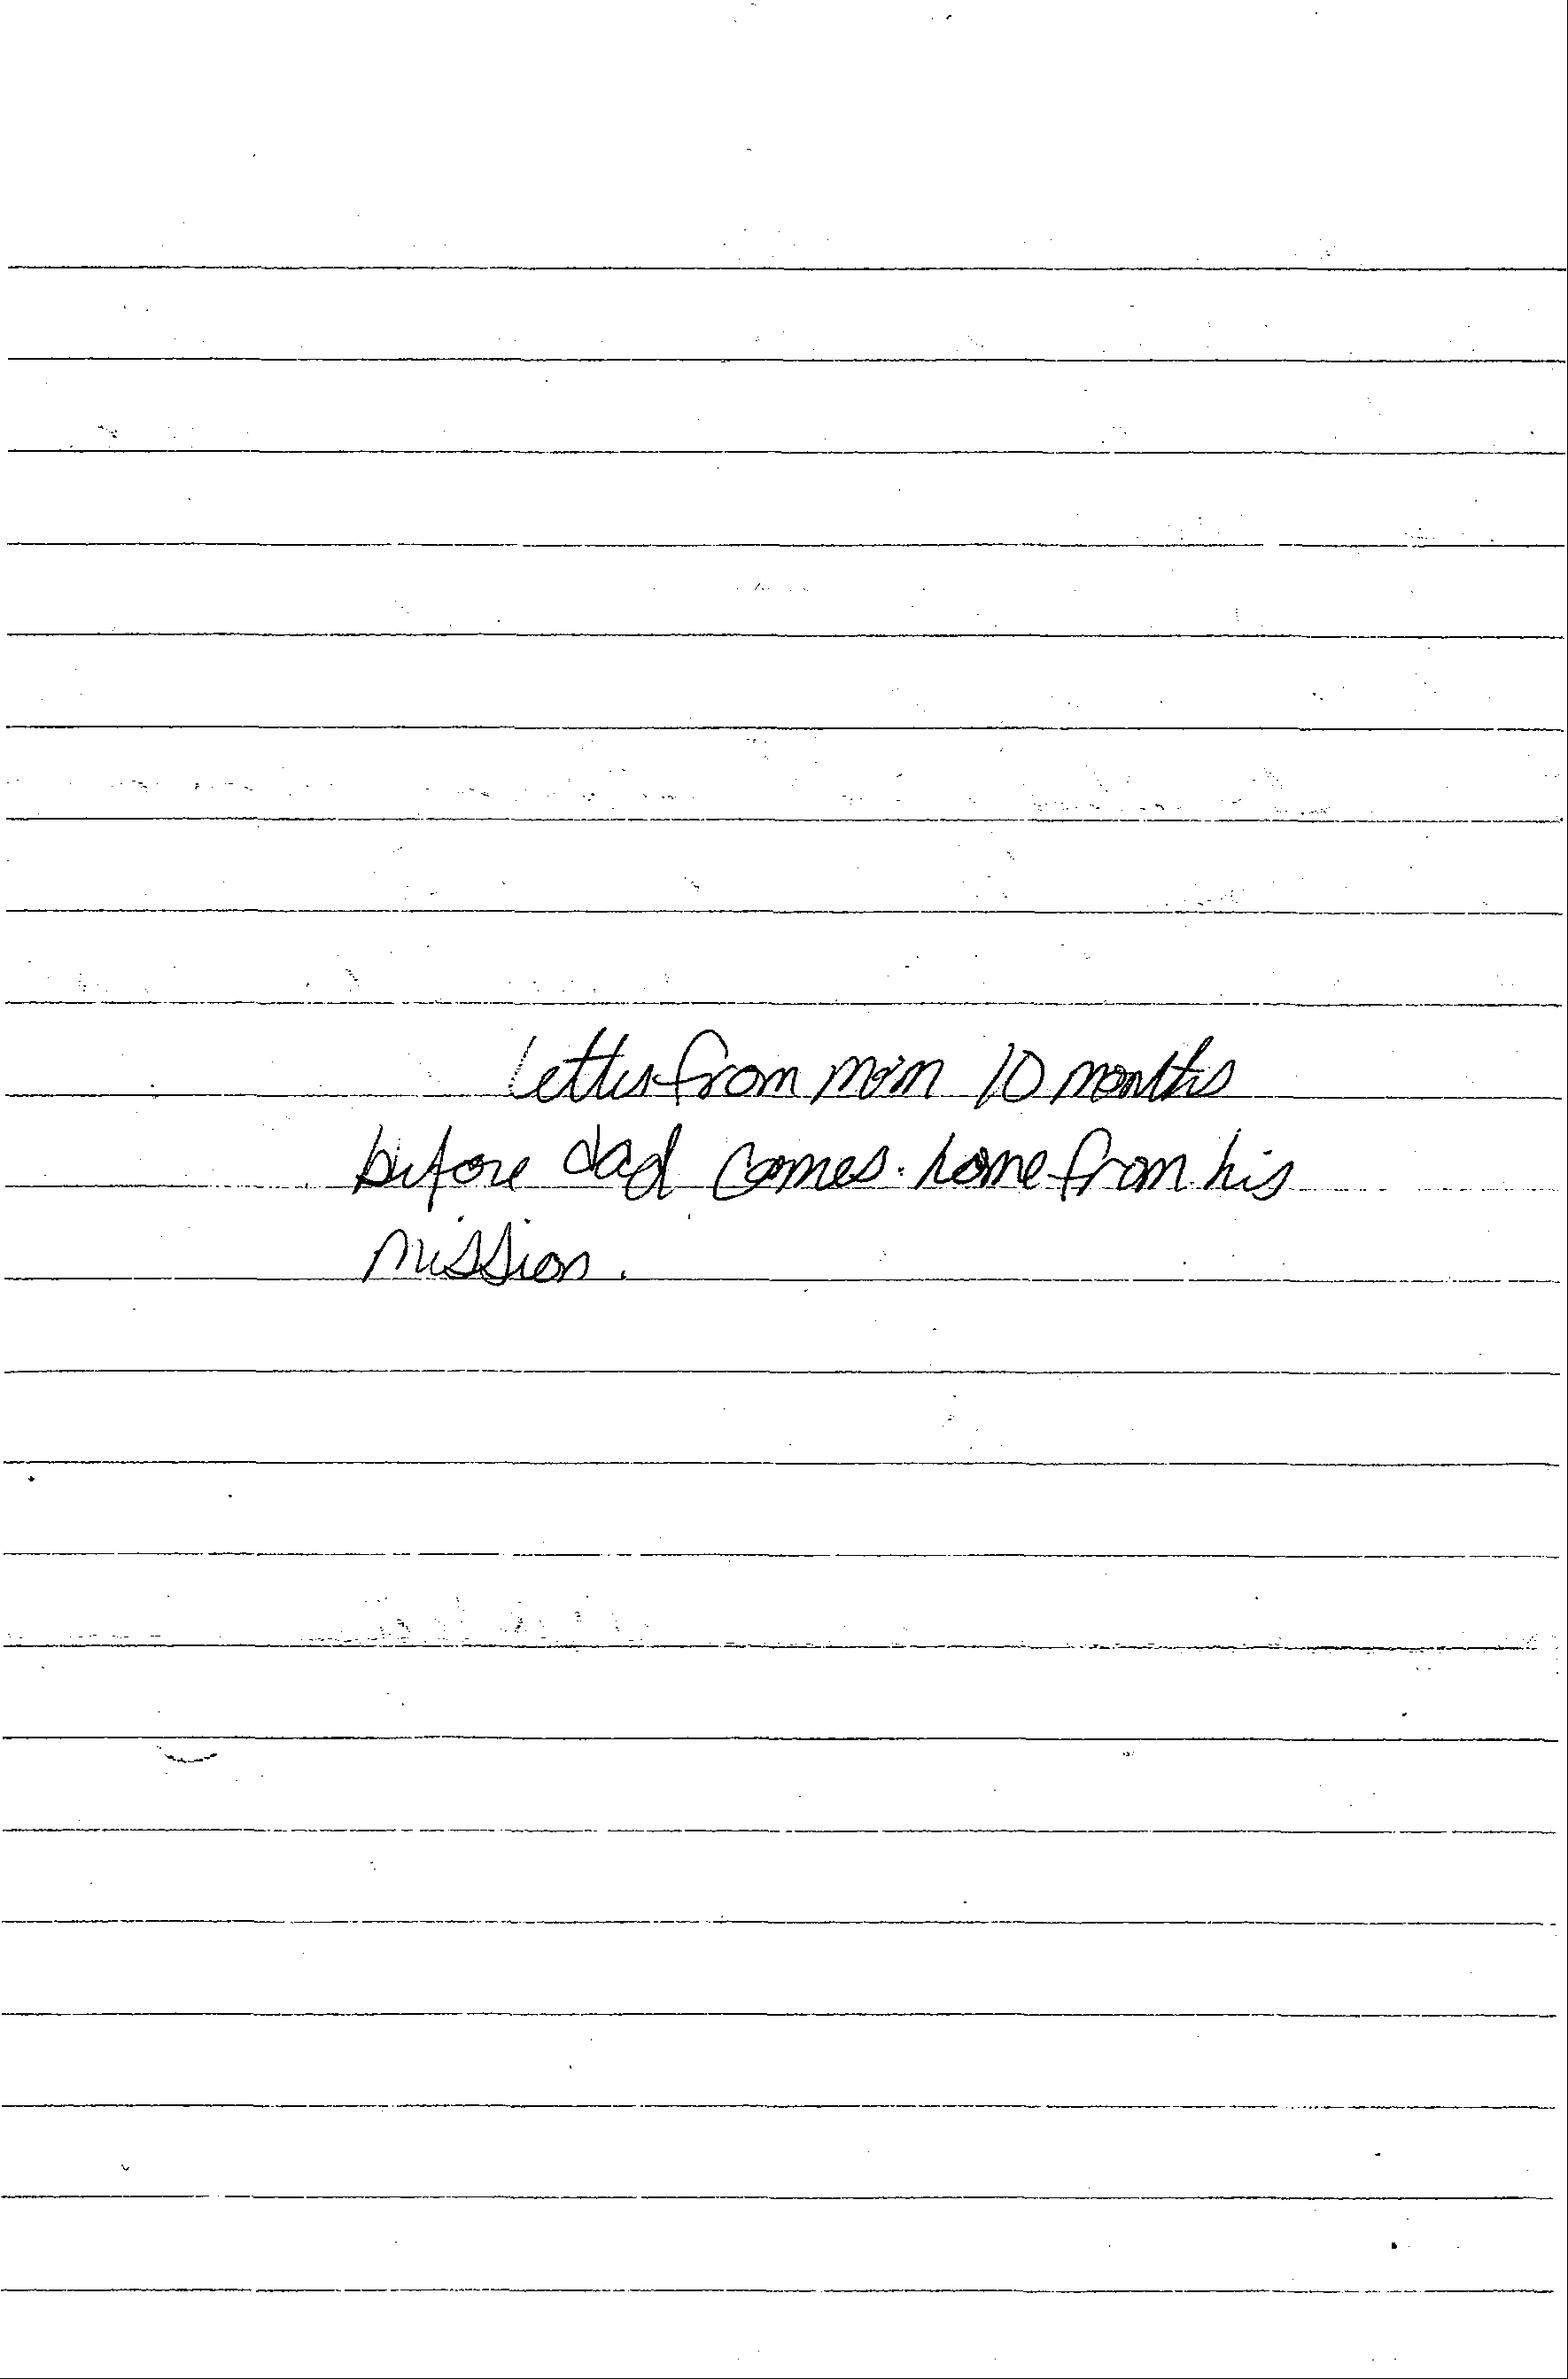 Letters from mom 10 months
before dad comes home from his
mission.